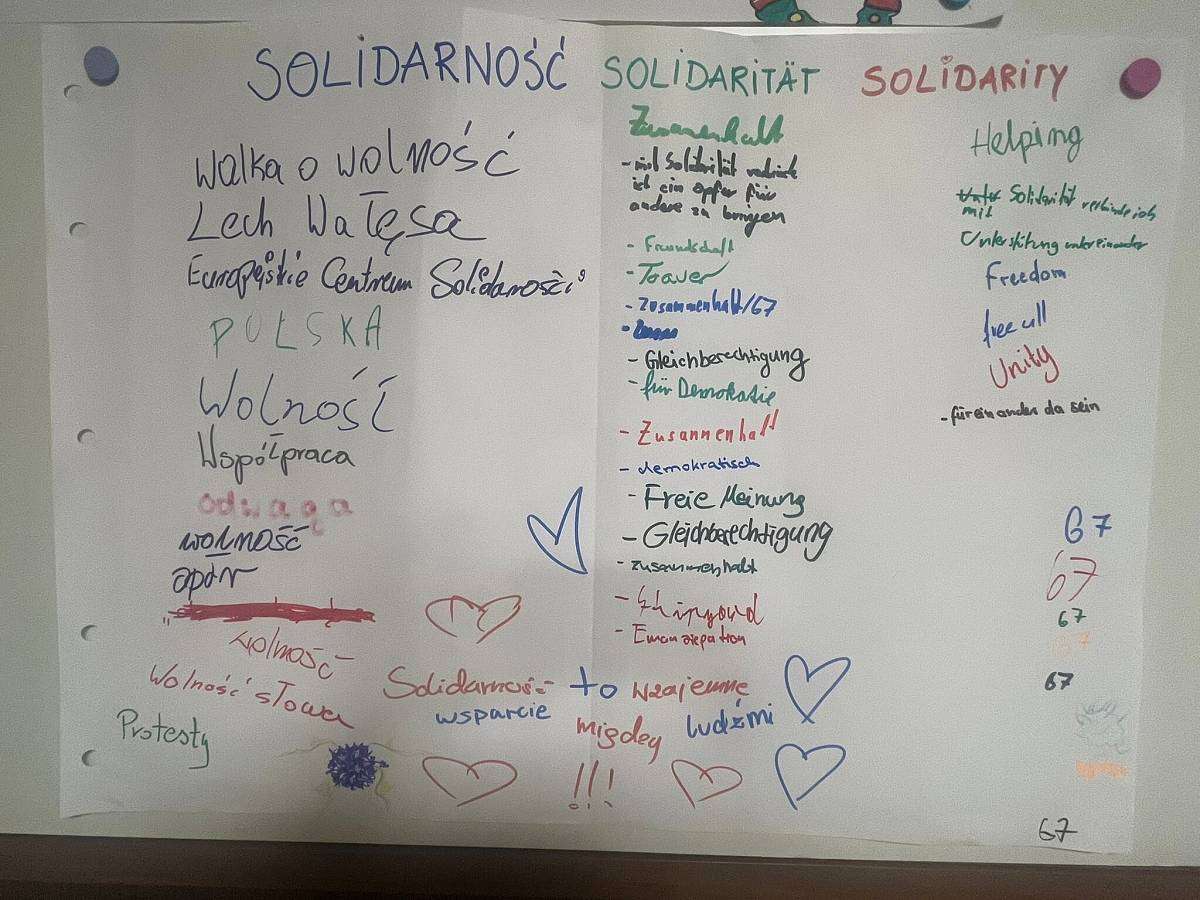 SOLIDARNOŚĆ SOLIDARITÄT SOLIDARITY
Walka o wolność
Lech Wałęsa
Europejskie Centrum Solidarności
POLSKA
Wolność
Współpraca
odwaga
wolność
opór
wolność
Wolność słowa
Protesty
Zusammenhalt
- mit Solidarität verbinde
ich ein opfer für
andere zu bringen
- Freundschaft
- Trauer
- Zusammenhalt/67
- Gleichberechtigung
- für Demokratie
- Zusammenhalt
- demokratisch
- Freie Meinung
- Gleichberechtigung
- zusammenhalt
- Emanziepation
Solidarność to wzajemne
wsparcie między ludźmi
!!!
Helping
mit Solidarität verbinde ich
Unterstitung untereinander
Freedom
free all
Unity
- füreinander da sein
67
67
67
67
67
67